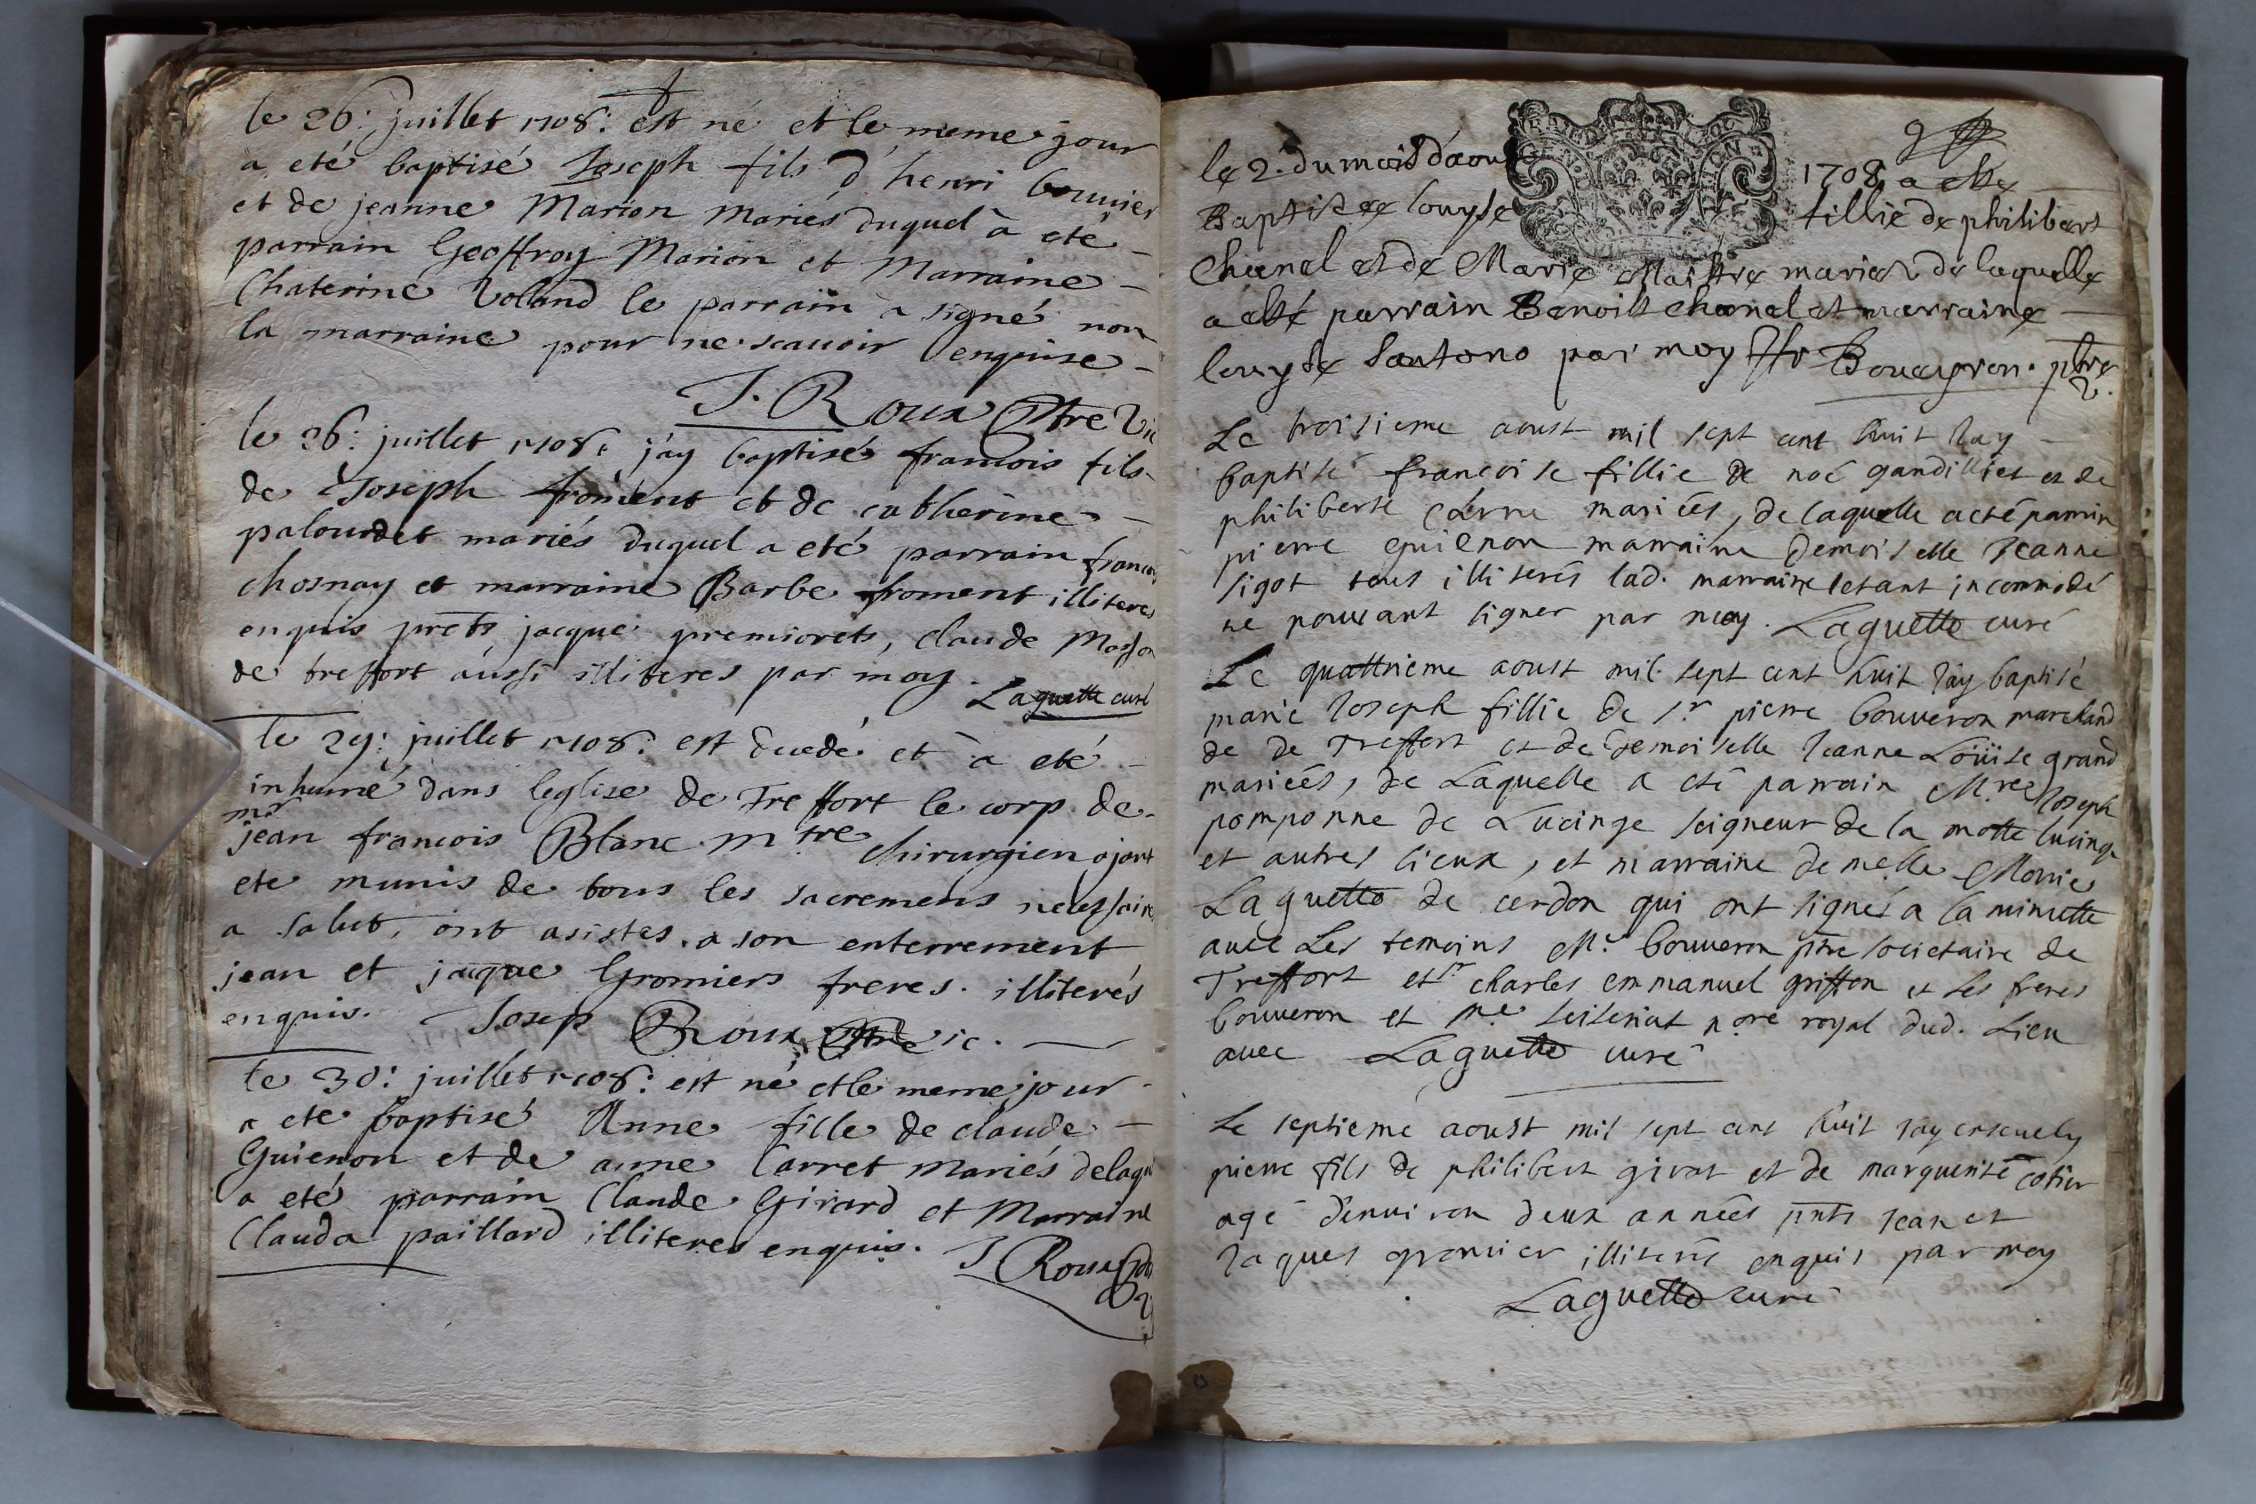 le 26: juillet 1708: est né et le meme jour
a eté baptisé Joseph fils d'henri bouvier
et de jeanne Marion mariés duquel à eté
parrain Geoffroy Marion et Marraine
Chaterine Voland le parrain à signé non
la marraine pour ne scauoir enquise
J. Roux ptre Vic
le 26: juillet 1708: j'ay baptisé francois fils
de Joseph froment et de catherine
paloudet mariés duquel a eté parrain francois
chosnay et marraine Barbe froment illiteres
enquis pnts jacque premiorets, claude
de treffort áussi illiteres par moy.
Laguette curé
le 29: juillet 1708: est decedé et à eté
inhumé dans leglise de Treffort le corp de
mr
jean francois Blanc mtre chirurgien ajant
ete munis de tous les sacremens necessaire
a salut, ont asistes a son enterrement
jean et jacque Gromiers freres. illiterés
enquis. Josep Roux ptre ic.
le 30: juillet 1708: est né et le meme jour
a ete baptisé Anne fille de claude
Guienon et de anne Carret mariés delaqu
a eté parrain Claude Girard et Marraine
Clauda paillard illiteres enquis. J Roux
le 2. du mois d'aou 1708 a esté
Baptisée louyse fillie de philibert
Chanel et de Marie Maistre mariez de laquelle
a esté parrain Benoist chanel et marraine
louyse par moy Bouueyron. ptre
Le troisieme aoust mil sept cent huit Jay
baptisé francoise fillie de noé gandilliet et de
philiberte mariées, de laquelle a eté parrin
pierre guienon marraine Demoiselle Jeanne
sigot tous illiterés lad. marraine setant incommodé
ne pouuant signer par moy. Laguette curé
Le quattrieme aoust mil sept cent huit Jáy baptisé
marie Joseph fillie de sr pierre bouueron marchand
de De Treffort et de Demoiselle Jeanne Loüise grand
mariées, de Laquelle a eté parrain Mre Joseph
pomponne de Lucinge seigneur de la motte lucinge
et autres lieux, et marraine demelle Marie
Laguette de cerdon qui ont signés a la minutte
auec Les temoins Mr. bouueron ptre societaire de
Treffort et sr charles emmanuel griffon et les freres
bouueron et me nore royal dud. Lieu
auec Laguette curé
Le septieme aoust mil sept cent huit Jay enseuely
pierre fils de philibert girot et de marguerite cotier
agé d'enuiron deux années pnts Jean et
Jaques gromier illiterés enquis par moy
Laguette curé